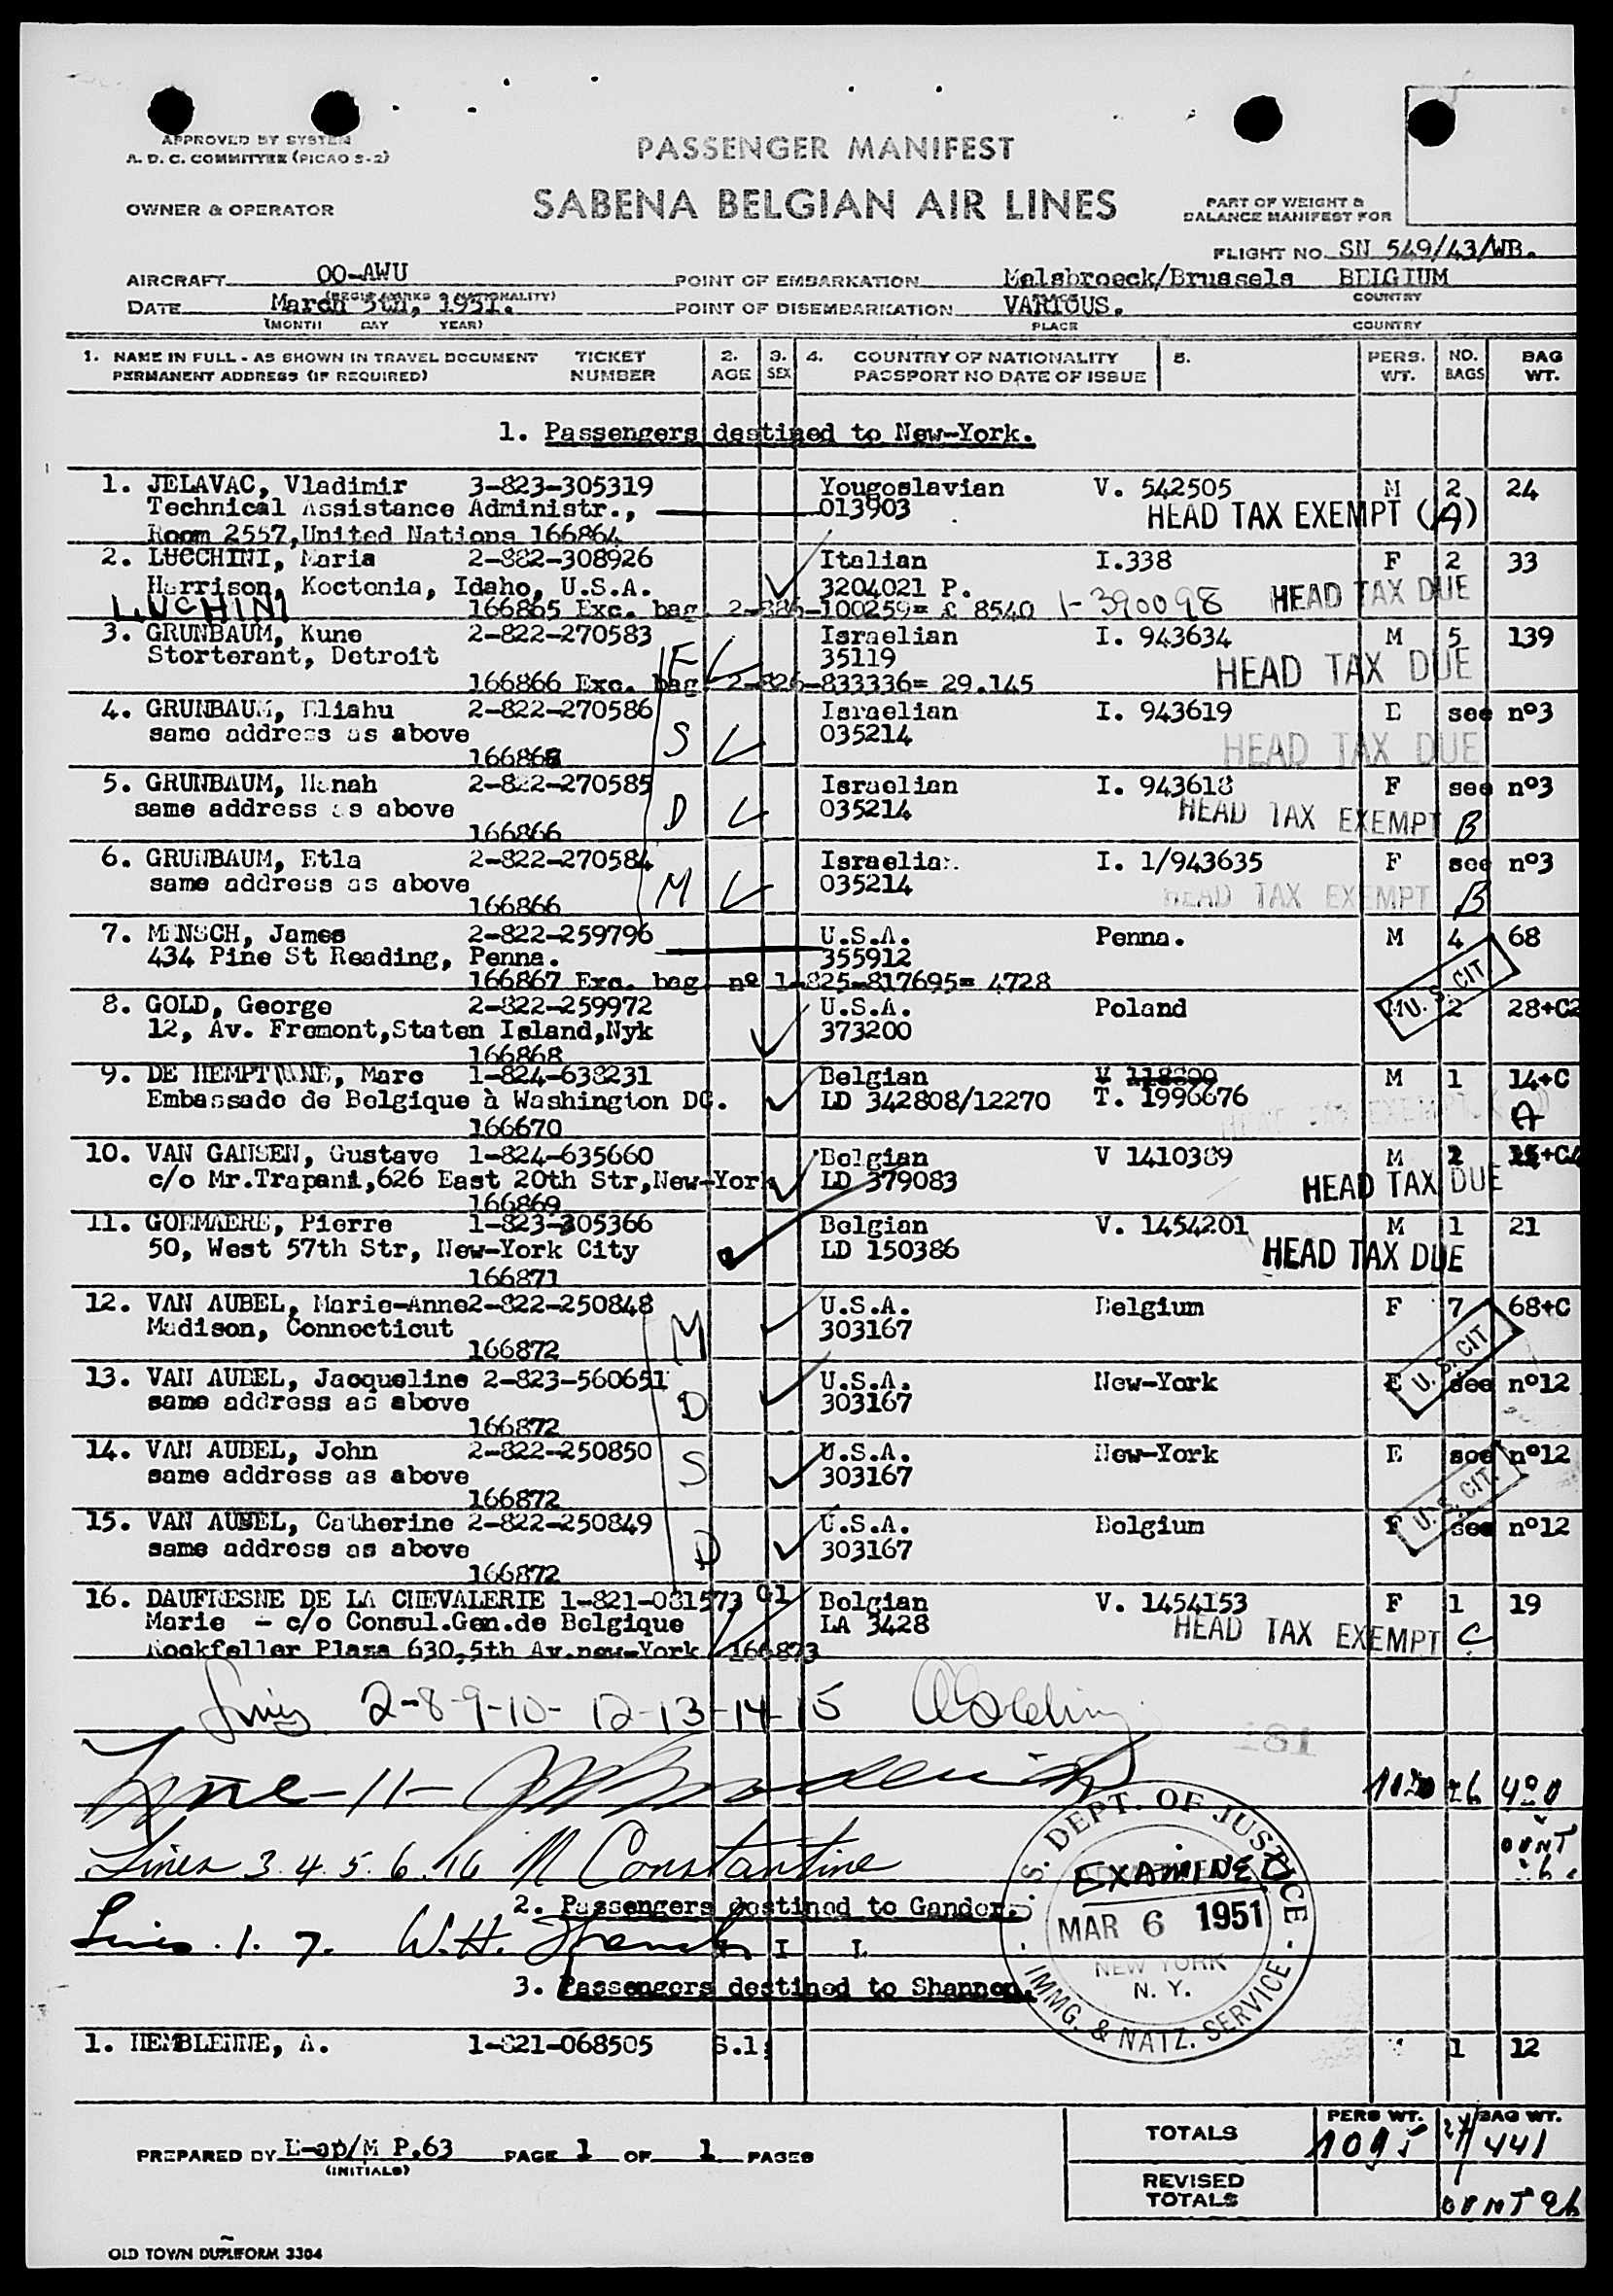 APPROVED BY SYSTEM
A. D. C. COMMITTEE (PICAO S-2)
PASSENGER MANIFEST
OWNER & OPERATOR
SABENA BELGIAN AIR LINES
PART OF WEIGHT &
BALANCE MANIFEST FOR
FLIGHT NO. SN 549/43/WB.
AIRCRAFT OO-AWU POINT OF EMBARKATION Melsbroeck/Brussels BELGIUM
COUNTRY
DATE March 5th, 1951. POINT OF DISEMBARKATION VARIOUS.
(MONTH DAY YEAR) PLACE COUNTRY
1. NAME IN FULL - AS SHOWN IN TRAVEL DOCUMENT TICKET 2. 3. 4. COUNTRY OF NATIONALITY 5. PERS. NO. BAG
PERMANENT ADDRESS (IF REQUIRED) NUMBER AGE SEX PASSPORT NO DATE OF ISSUE WT. BAGS WT.
1. Passengers destined to New-York.
1. JELAVAC, Vladimir 3-823-305319 Yougoslavian V. 542505 M 2 24
Technical Assistance Administr., 013903 HEAD TAX EXEMPT (A)
Room 2557,United Nations 166864
2. LUCCHINI, Maria 2-882-308926 Italian I.338 F 2 33
Harrison, Koctonia, Idaho, U.S.A. 3204021 P. HEAD TAX DUE
LUCHINI 166865 Exc. bag. 2-886-100259= £ 8540 1-390098
3. GRUNBAUM, Kune 2-822-270583 Israelian I. 943634 M 5 139
Storterant, Detroit F 35119 HEAD TAX DUE
166866 Exc. bag. 2-826-833336= 29.145
4. GRUNBAUM, Eliahu 2-822-270586 Israelian I. 943619 E see nº3
same address as above S 035214 HEAD TAX DUE
166866
5. GRUNBAUM, Hanah 2-822-270585 Israelian I. 943618 F see nº3
same address as above D 035214 HEAD TAX EXEMPT B
166866
6. GRUNBAUM, Etla 2-822-270584 Israelian. I. 1/943635 F see nº3
same address as above M 035214 HEAD TAX EXEMPT B
166866
7. MENSCH, James 2-822-259796 U.S.A. Penna. M 4 68
434 Pine St Reading, Penna. 355912 U. S. CIT.
166867 Exc. bag. nº 1-825-817695= 4728
8. GOLD, George 2-822-259972 U.S.A. Poland M 2 28+C2
12, Av. Fremont,Staten Island,Nyk 373200
166868
9. DE HEMPTINNE, Marc 1-824-638231 Belgian M 1 14+C
Embassade de Belgique à Washington DC. LD 342808/12270 T. 1996676 A
166670
10. VAN GANSEN, Gustave 1-824-635660 Belgian V 1410389 M 2
c/o Mr.Trapani,626 East 20th Str,New-York LD 379083 HEAD TAX DUE
166869
11. GOEMAERE, Pierre 1-823-305366 Belgian V. 1454201 M 1 21
50, West 57th Str, New-York City LD 150386 HEAD TAX DUE
166871
12. VAN AUBEL, Marie-Anne2-822-250848 U.S.A. Belgium F 7 68+C
Madison, Connecticut M 303167 U. S. CIT
166872
13. VAN AUBEL, Jacqueline 2-823-560651 U.S.A. New-York E see nº12
same address as above D 303167
166872
14. VAN AUBEL, John 2-822-250850 U.S.A. New-York E see nº12
same address as above S 303167 U. S. CIT.
166872
15. VAN AUBEL, Catherine 2-822-250849 U.S.A. Belgium F see nº12
same address as above D 303167
166872
16. DAUFRESNE DE LA CHEVALERIE 1-821-081573 G1 Belgian V. 1454153 F 1 19
Marie - c/o Consul.Gen.de Belgique LA 3428 HEAD TAX EXEMPT C
Rockfeller Plaza 630,5th Av.new-York 166873
Lines 2-8-9-10-12-13-14-15
181
Line -11-
Lines 3. 4. 5. 6. 16 N Constantine
2. Passengers destined to Gander.
Lines . 1. 7. W.H. French
N I L
U. S. DEPT. OF JUSTICE
EXAMINED
MAR 6 1951
NEW YORK
N. Y.
IMMG. & NATZ. SERVICE
3. Passengers destined to Shannon.
1. HEMBLENNE, A. 1-821-068505 S.1 1 12
TOTALS PERS WT. BAG WT.
1095 27 441
PREPARED BY L-ap/M P.63 PAGE 1 OF 1 PAGES
(INITIALS)
REVISED
TOTALS
OLD TOWN DUPLIFORM 3304